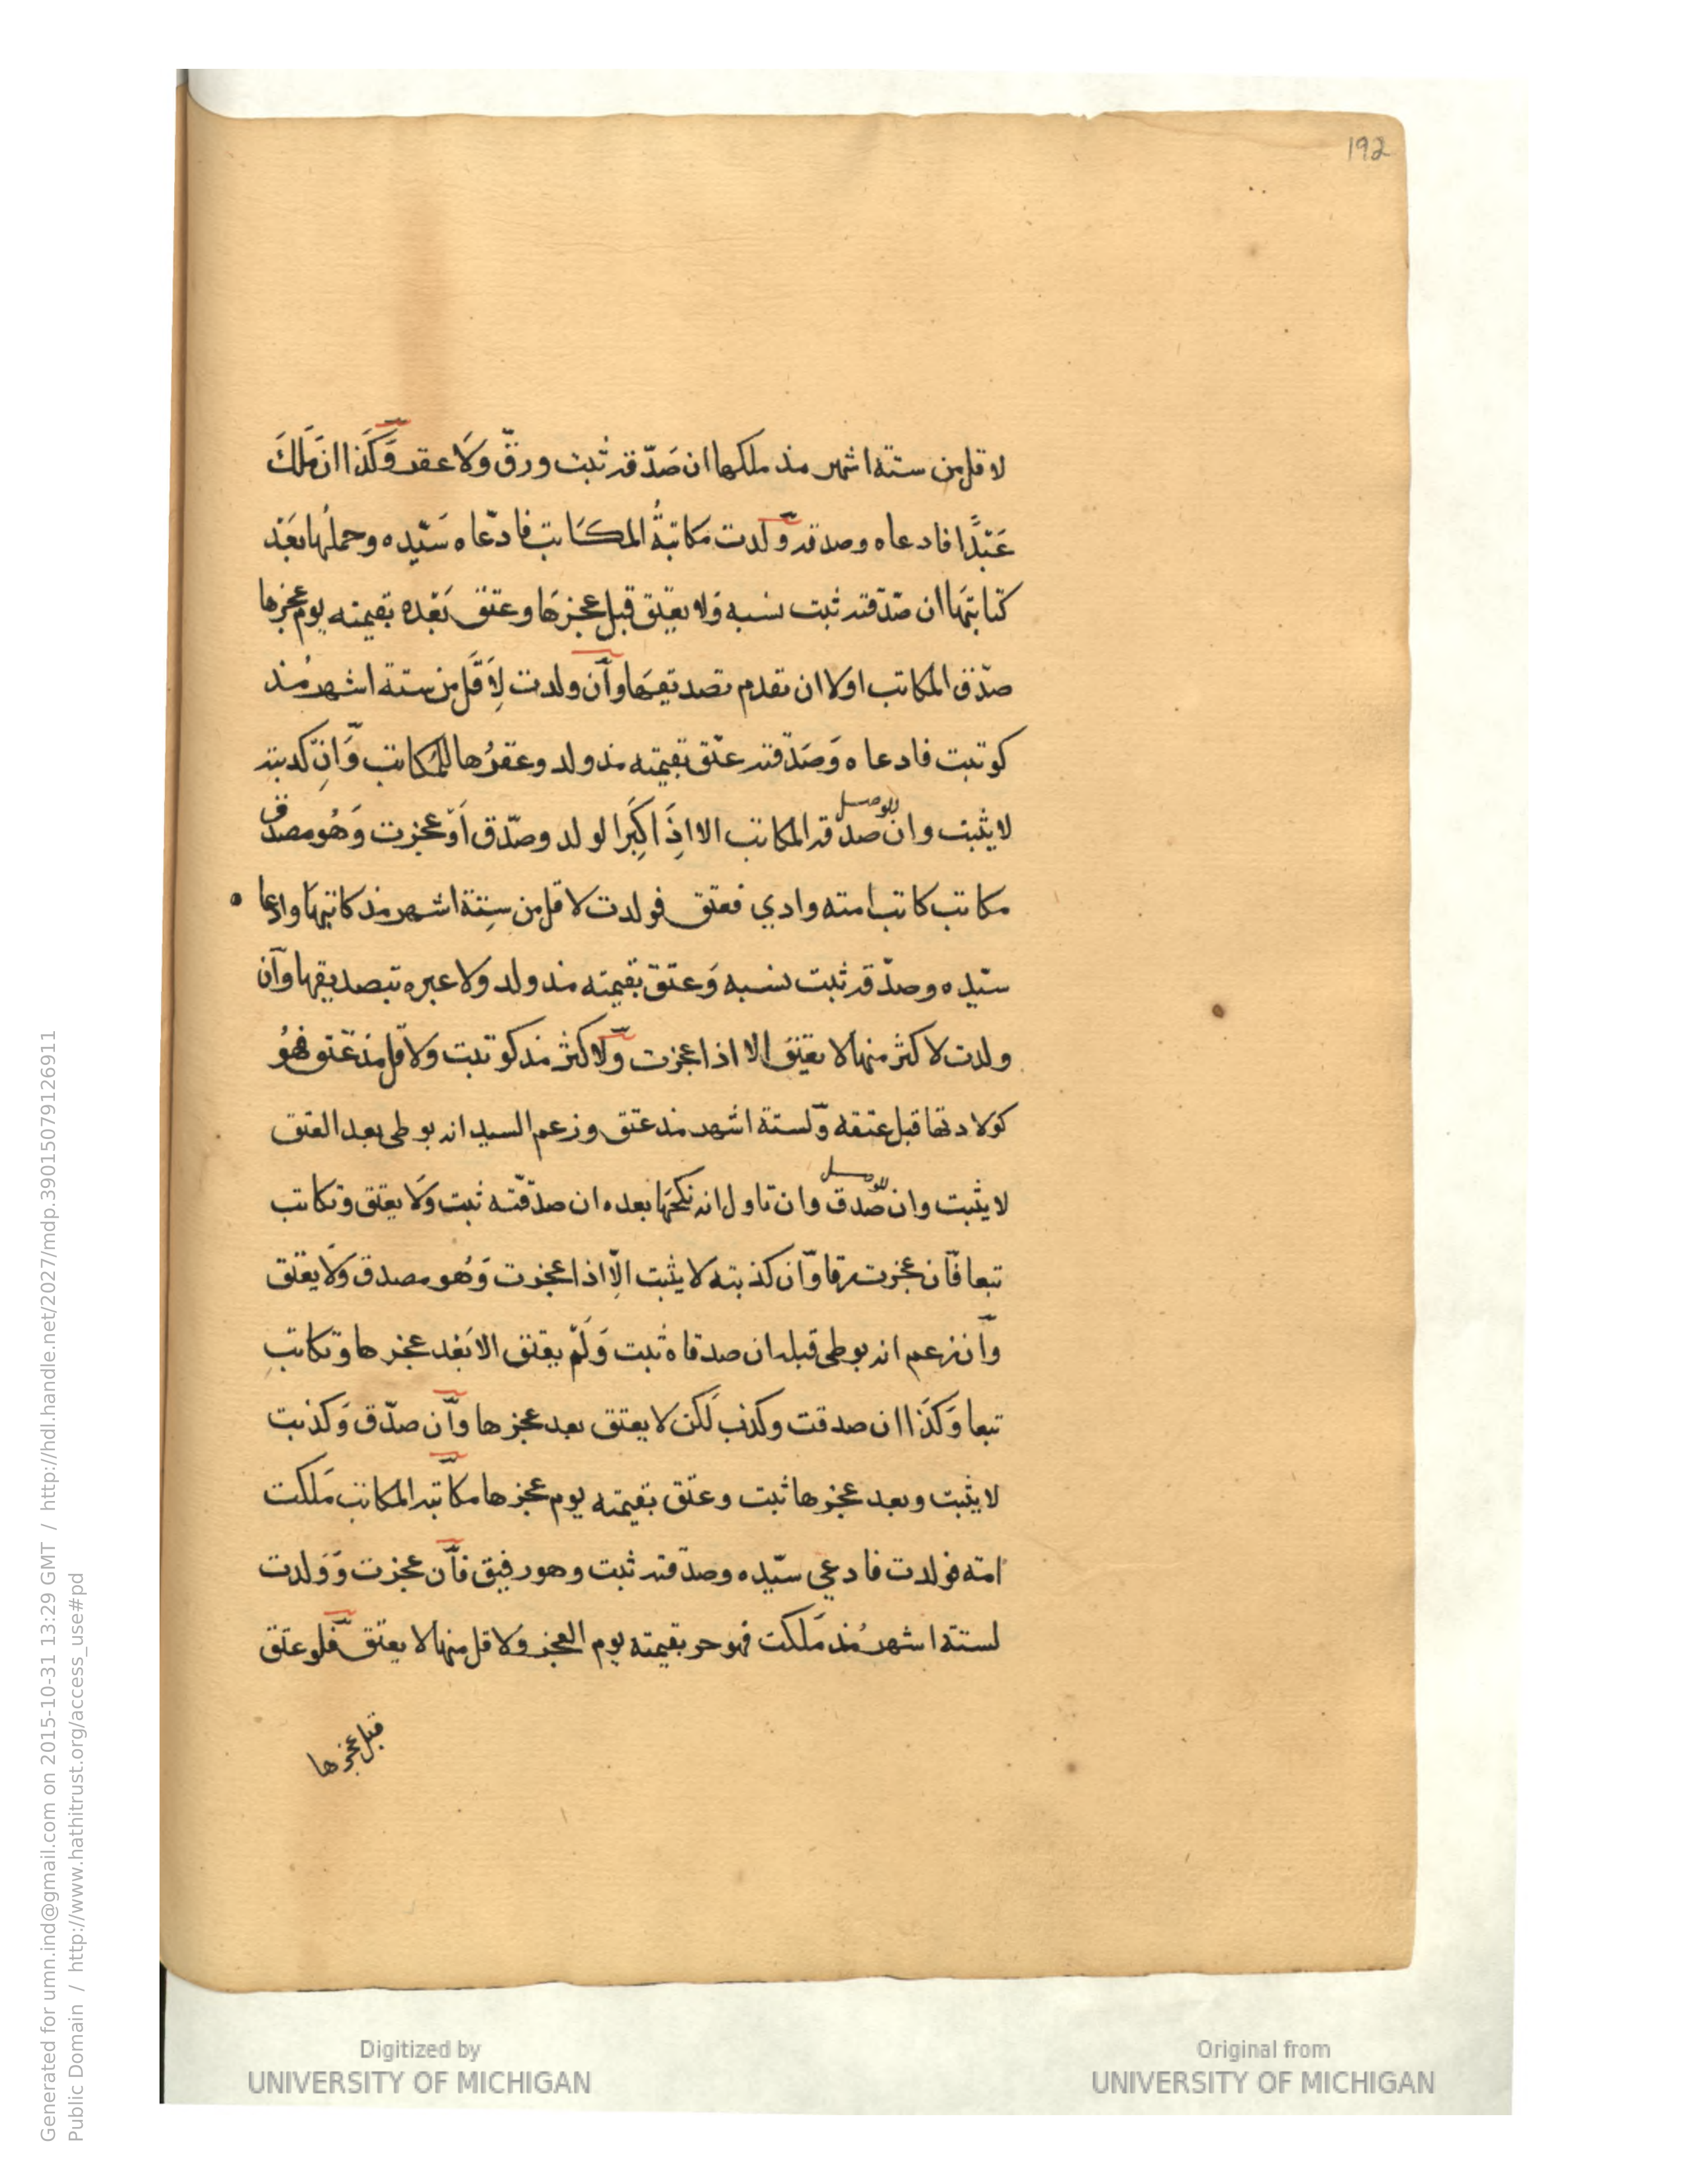 192
لاقل من ستة اشهر مذ ملكها ان صَدّقه ثبت ورقّ وَلَا عقر وَكَذا ان مَلكَ
عَبْدًا فادعاه وصدقه وَلدت مكاتبةُ المكَاتب فادّعاه سَيّده وحملُها بَعْد
كتابتهَا ان صَدّقته ثبت نسبه وَلا يعْتق قبل عجزهَا وعتق بَعْده بقيمته يوم عجزها
صدّق المكاتب اولا ان تقدم تصديقهَا وَان ولدت لِاَقَل من ستة اشهر مُذ
كوتبت فادعاه وَصَدّقته عتق بقيمته مذ ولد وعقرُها للمكاتب وَانْ كذبته
لا يثبت وان صدقه المكاتب الا اذَا كبَرا لولد وصدّق اَوْ عجزت وَهُو مصدق
للوصل
مكاتب كاتب امته وادي فعتق فولدت لاقل من سِتة اشهر مذ كاتبهَا وادعا
سيّده وصدّقه ثبت نسبه وَعتق بقيمته مذ ولد ولا عبره بتصديقها وَان
ولدت لاكثر منها لا يعْتق الا اذا عجزت وَلاكثر مذ كوتبت ولاقل مذ عَتق فهُو
كولادتها قبل عتقه وَلستة اشهر مذ عتق وزعم السيد انه بوطى بعد العتق
لا يثبت وان صدق وان تاول انه نكحَهَا بعده ان صدقته ثبت وَلَا يعتق وتكاتب
للوصل
تبعا فَان عجزت رقا وَان كذبته لا يثبت الّا اذا عجزت وَهُو مصدق وَلَا يعْتق
وَان زعم انه بوطى قبله ان صدقاه ثبت وَلَمْ يعتق الا بَعْد عجزها وتكاتب
تبعا وَكَذَا ان صدقت وكذب لَكن لا يعتق بعد عجزها وَان صدّق وَكذبت
لا يثبت وبعد عجزها ثبت وعتق بقيمته يوم عجزها مكَاتبه المكاتب مَلكت
امته فولدت فادعي سيّده وصدقته ثبت وهو رقيق فَان عجزت وَوَلدت
لستة اشهر مُذ مَلكت فهو حر بقيمته يوم العجز وَلاقل منها لا يعتق فَلو عتق
قبل عجزها
Generated for umn.ind@gmail.com on 2015-10-31 13:29 GMT / http://hdl.handle.net/2027/mdp.39015079126911
Public Domain / http://www.hathitrust.org/access_use#pd
Digitized by
UNIVERSITY OF MICHIGAN
Original from
UNIVERSITY OF MICHIGAN